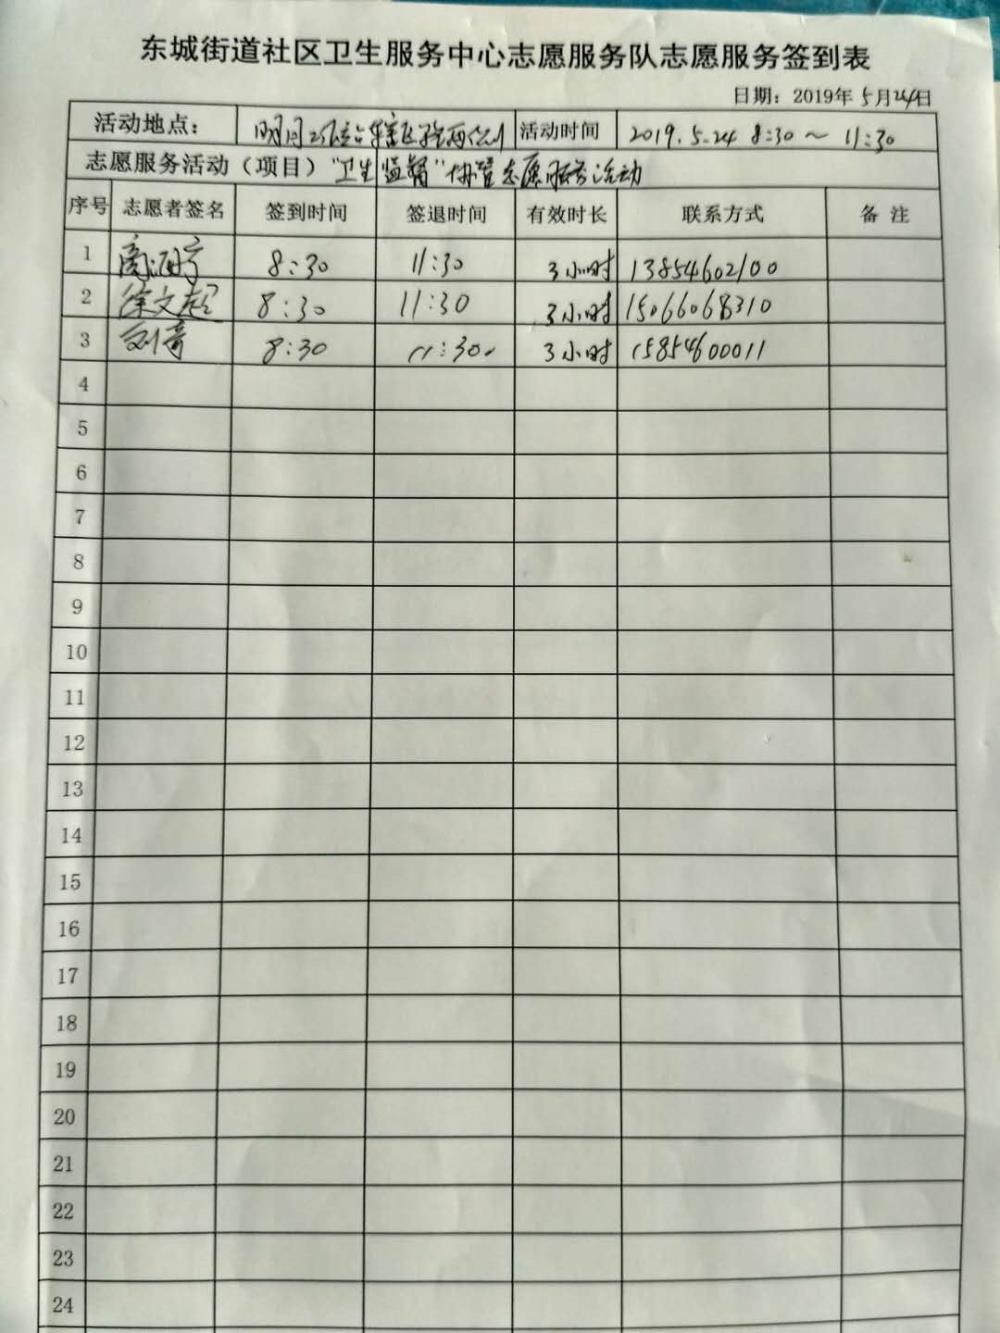 东城街道社区卫生服务中心志愿服务队志愿服务签到表
日期：2019年5月24日
活动地点： 明月 辖区 活动时间 2019.5.24 8:30～11:30
志愿服务活动（项目）"卫生监督"协管志愿服务活动
序号 志愿者签名 签到时间 签退时间 有效时长 联系方式 备注
1 8:30 11:30 3小时 13854602100
2 徐文超 8:30 11:30 3小时 15066068310
3 刘奇 8:30 11:30. 3小时 15854600011
4
5
6
7
8
9
10
11
12
13
14
15
16
17
18
19
20
21
22
23
24